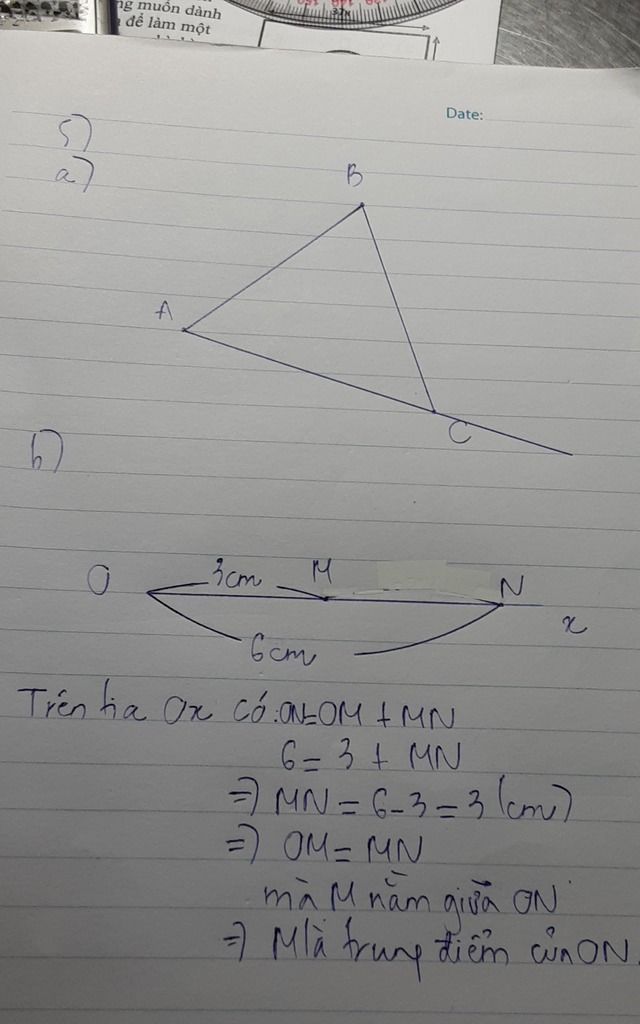 ng muốn dành
để làm một
Date:
5)
a)
B
A
C
b)
O 3cm M N
x
6cm
Trên tia Ox có: ON=OM + MN
6 = 3 + MN
=> MN = 6-3 = 3 (cm)
=> OM = MN
mà M nằm giữa ON
=> M là trung điểm của ON.